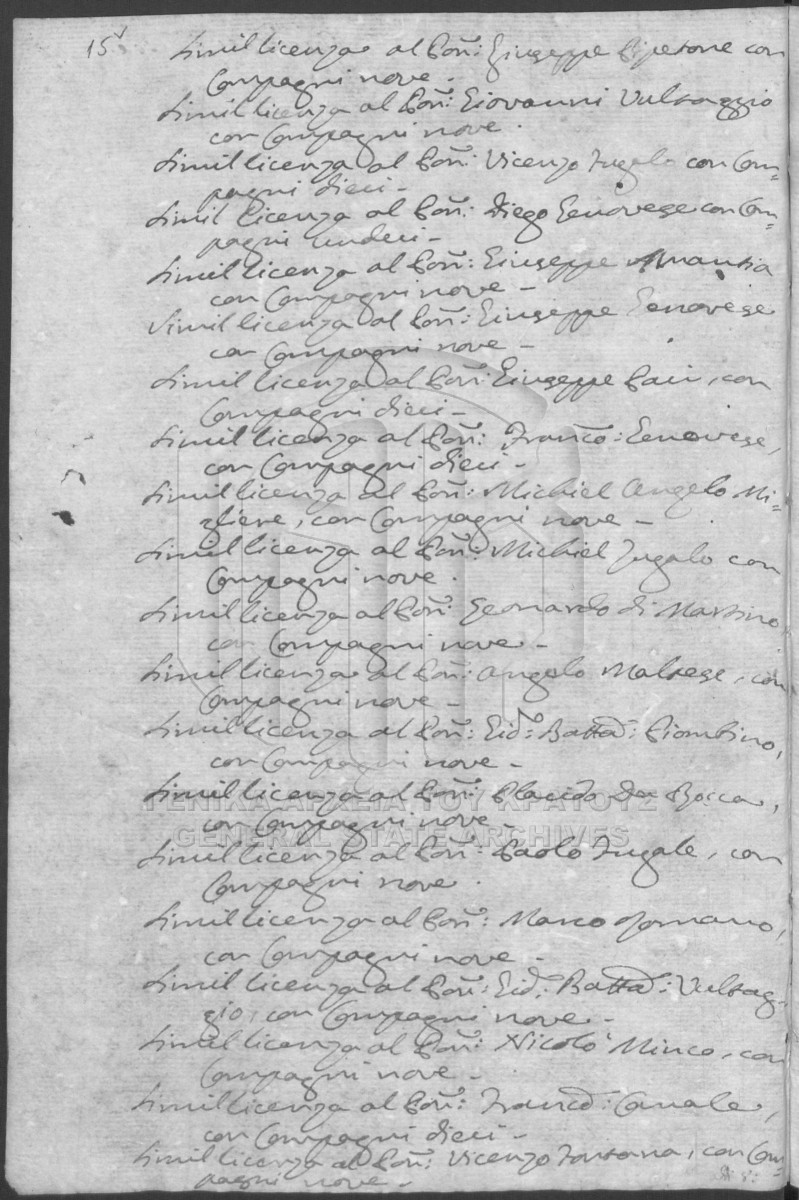 15v
Simil licenza al Pon: Giuseppe Piperone con
Compagni nove -
Simil licenza al Pon: Giovanni Vultaggio
con Compagni nove.
Simil licenza al Pon: Vicenzo Fugalo con Com=
pagni dieci -
Simil licenza al Pon: Diego Genovese con Com=
pagni undeci -
Simil licenza al Pon: Giuseppe
con Compagni nove -
Simil licenza al Pon: Giuseppe Genovese
con Compagni nove -
Simil licenza al Pon: Giuseppe, con
Compagni dieci -
Simil licenza al Pon: Franco: Genovese,
con Compagni dieci -
Simil licenza al Pon: Michiel Angelo Mi=
gliere, con Compagni nove -
Simil licenza al Pon: Michiel Fugalo con
Compagni nove.
Simil licenza al Pon: Leonardo di Martino
con Compagni nove -
Simil licenza al Pon: Angelo Maltese, con
Compagni nove -
Simil licenza al Pon: Gio: Batta: Piombino,
con Compagni nove -
Simil licenza al Pon: Placido Da Bocca,
con Compagni nove -
ΓΕΝΙΚΑ ΑΡΧΕΙΑ ΤΟΥ ΚΡΑΤΟΥΣ
GENERAL STATE ARCHIVES
Simil licenza al Pon: Paolo Fugale, con
Compagni nove.
Simil licenza al Pon: Marco Romano,
con Compagni nove -
Simil licenza al Pon: Gio: Batta: Vultag=
gio, con Compagni nove -
Simil licenza al Pon: Nicolò Minco, con
Compagni nove -
Simil licenza al Pon: Franco: Canale,
con Compagni dieci -
Simil licenza al Pon: Vicenzo Fontana, con Com=
pagni nove -